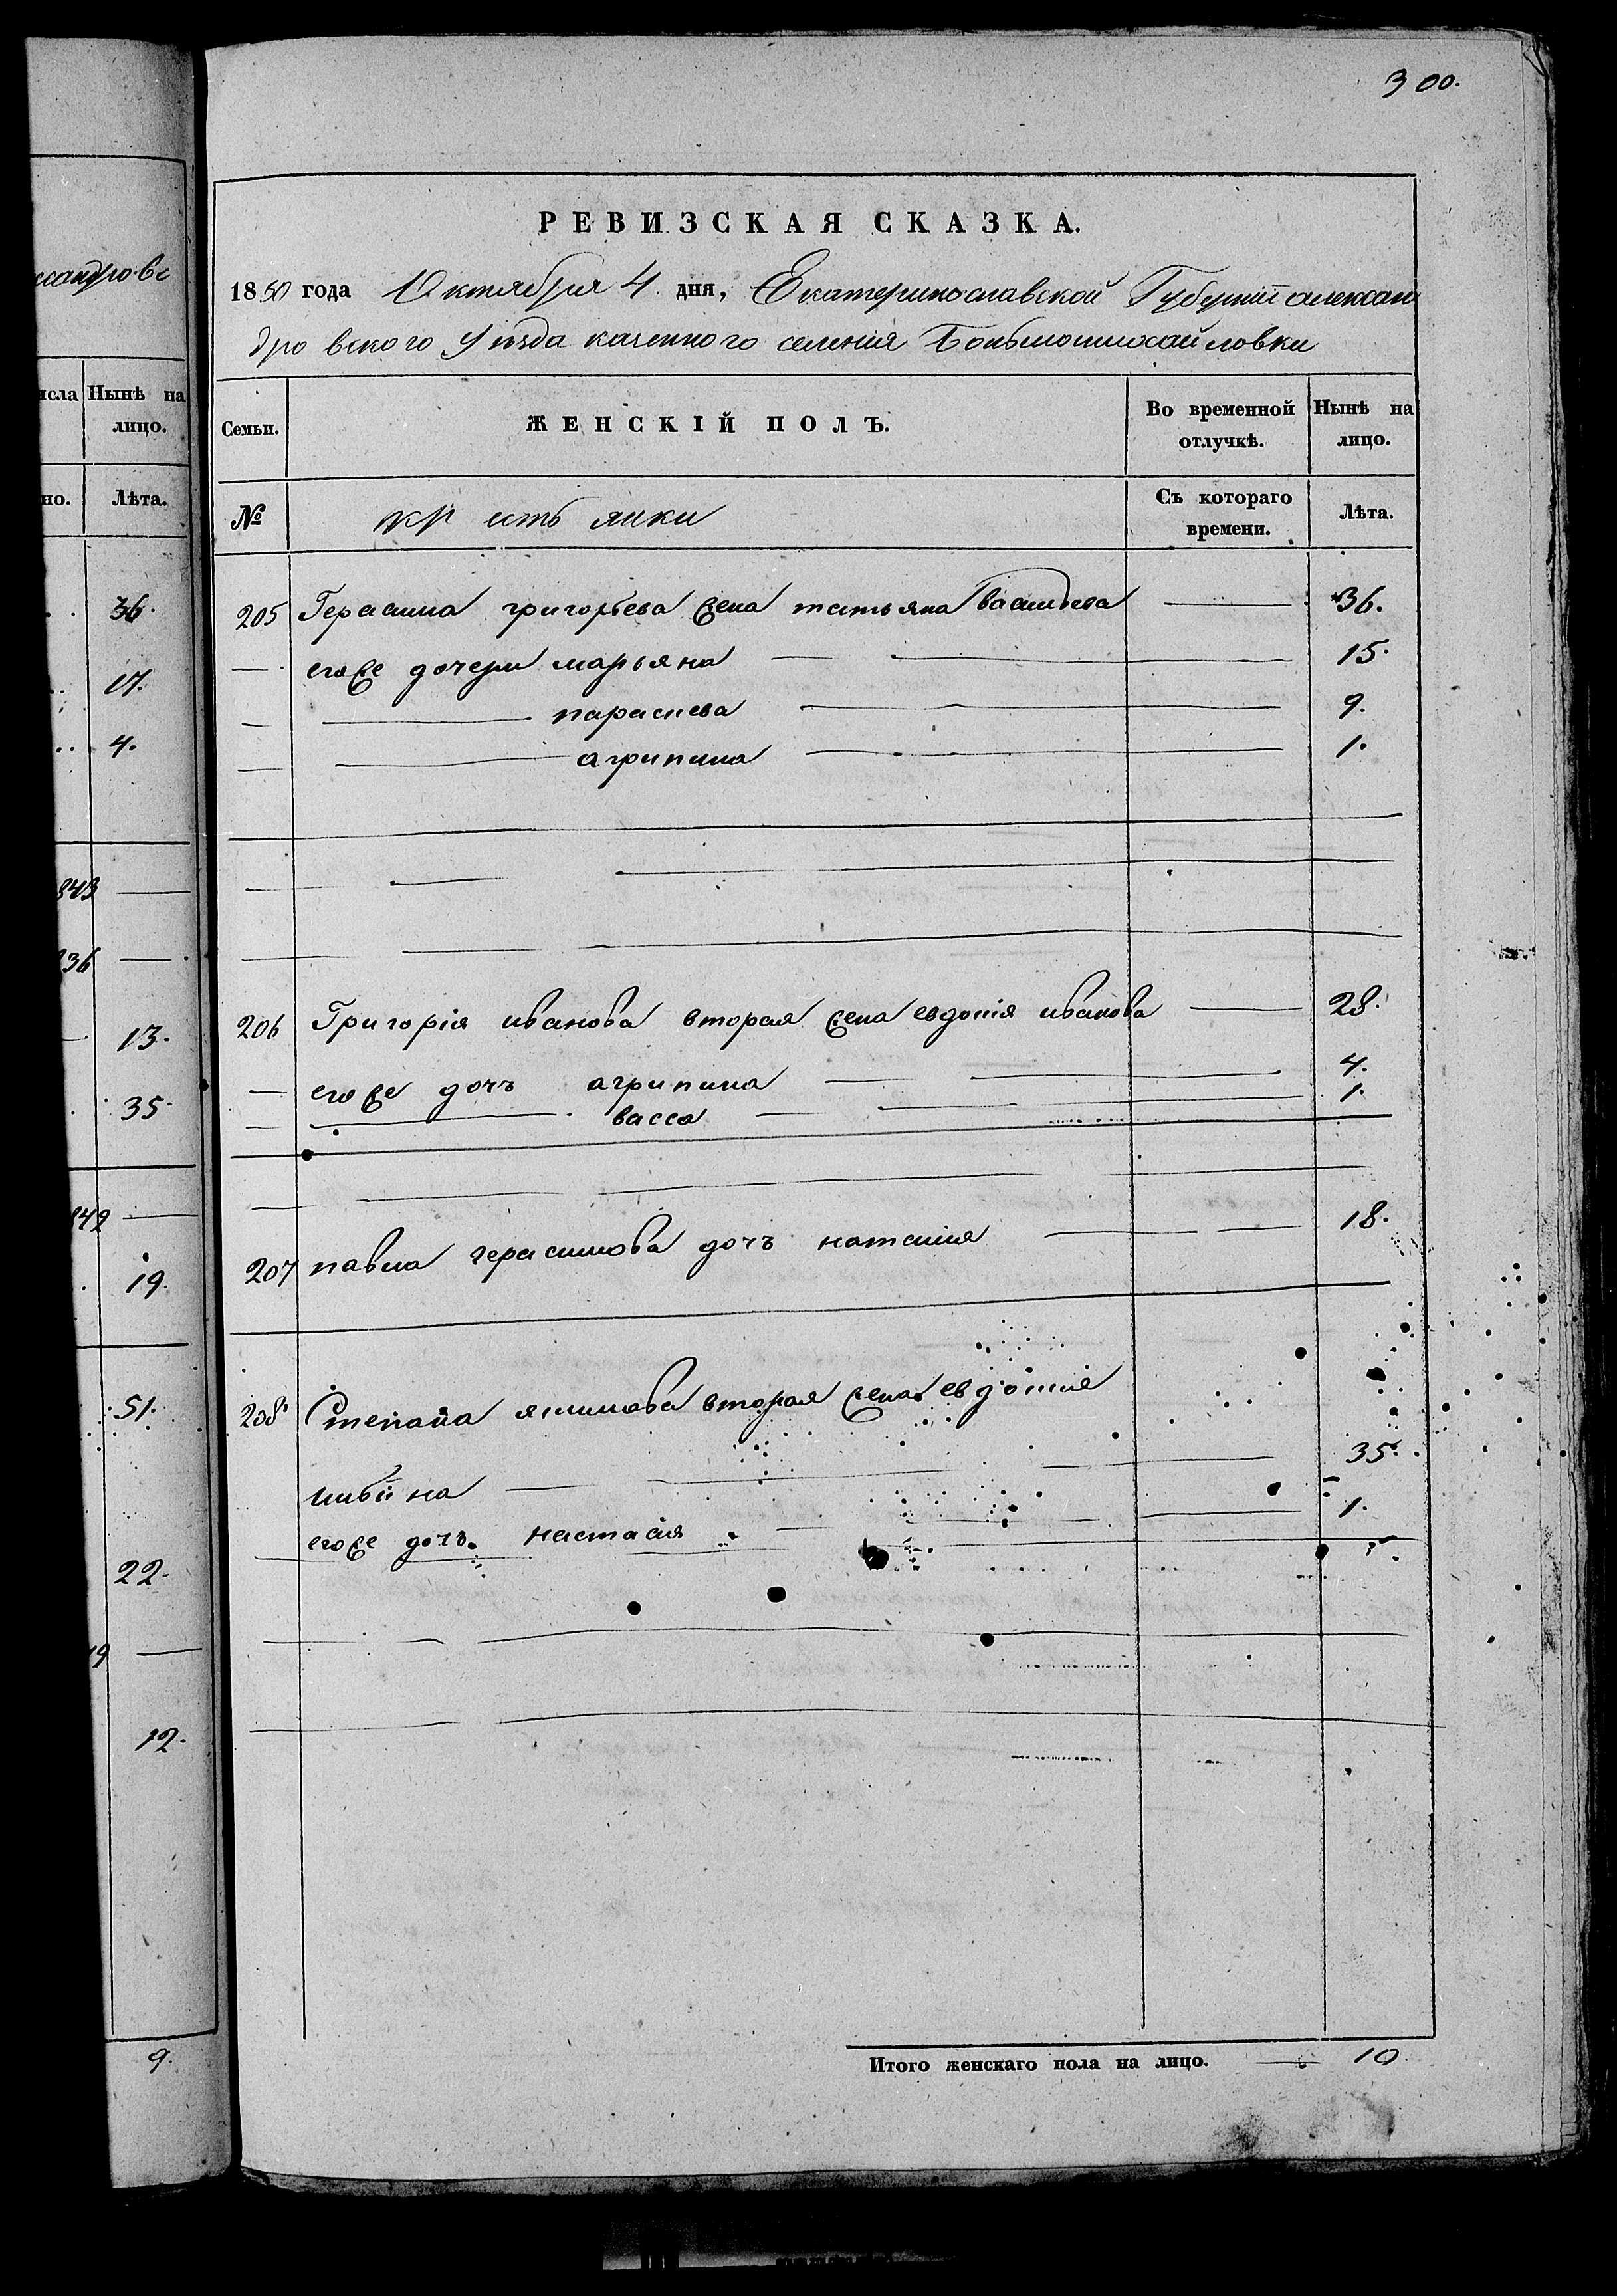 300.
РЕВИЗСКАЯ СКАЗКА.
1850 года Октября 4. дня, Екатеринославской Губернiи алексан
дровского Уѣзда казенного селения Большомихайловки
ссандровс
исла Нынѣ на лицо.
но. Лѣта.
36.
17.
4.
843
836
13.
35.
842
19.
51.
22.
19
12.
9.
Семьи. ЖЕНСКIЙ ПОЛЪ. Во временной отлучкѣ. Нынѣ на лицо.
№ кр есть янки Съ котораго времени. Лѣта.
205 Герасима григорьева жена татьяна васильева 36.
егоже дочери марьяна 15.
параскева 9.
агрипина 1.
206 Григорiя иванова вторая жена евдокiя иванова 28.
егоже дочь агрипина 4.
васса 1.
207 павла герасимова дочь наталiя 18.
208 Степана вторая жена евдокiя
35.
егоже дочь настасiя 1.
Итого женскаго пола на лицо. 10.